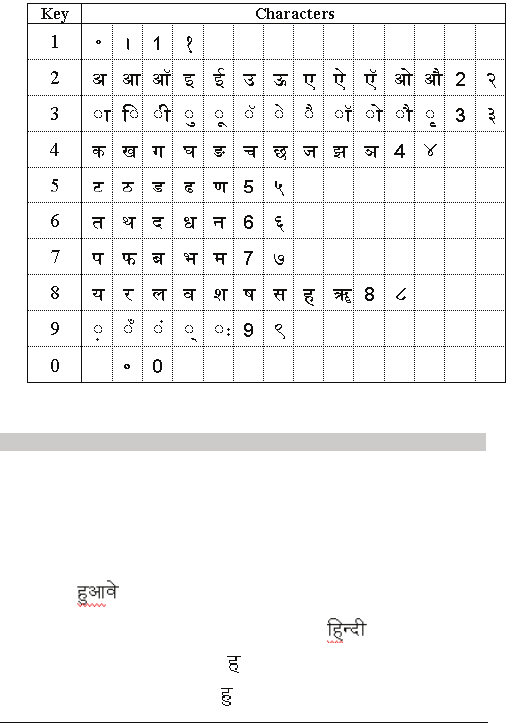 Key Characters
1 ॰ । 1 १
2 अ आ ऑ इ ई उ ऊ ए ऐ ऍ ओ औ 2 २
3 ा ि ी ु ू ॅ े ै ॉ ो ौ ृ 3 ३
4 क ख ग घ ङ च छ ज झ ञ 4 ४
5 ट ठ ड ढ ण 5 ५
6 त थ द ध न 6 ६
7 प फ ब भ म 7 ७
8 य र ल व श ष स ह ऋ 8 ८
9 ़ ँ ं ् ः 9 ९
0 ० 0
हुआवे
हिन्दी
ह
हु